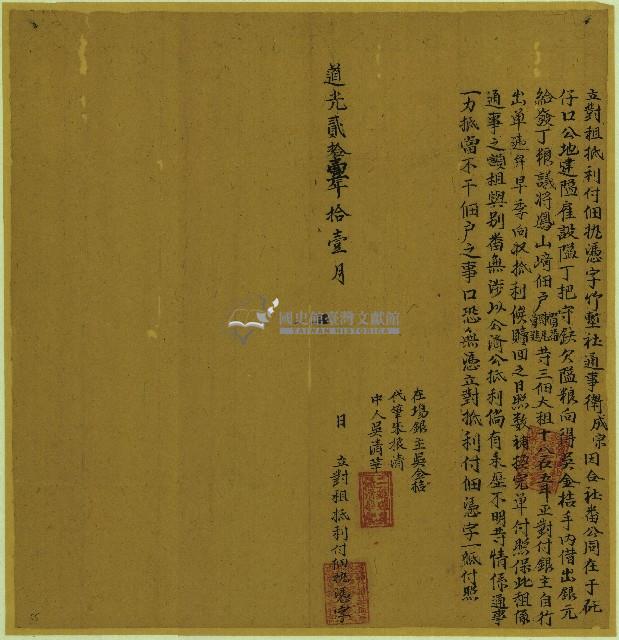 立對租抵利付佃執憑字竹塹社通事衛成宗因合社番公同在于矺
仔口公地建隘雇設隘丁把守缺欠隘粮向得吳金桔手內借出銀元
給發丁粮議將鳳山崎佃戶等三佃大租十八石五斗正對付銀主自行
出单逐年早季向収抵利候贖回之日照数補換完单付照保此租係
通事之額租與別番無涉以公濟公抵利倘有来歷不明等情係通事
一力抵當不干佃户之事口恐無憑立對抵利付佃憑字一紙付照
在塲銀主吳金桔
代筆朱振清
中人吳清華
道光貳拾壹年拾壹月
日立對租抵利付佃執憑字
國史館臺灣文獻館
TAIWAN HISTORICA
55